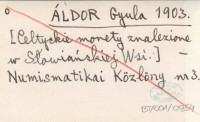 ÁLDOR Gyula 1903.
[Celtyckie monety znalezione
w Słowiańskiej Wsi.] —
Numismatikai Közlöny na3.
BJ/00A/0984